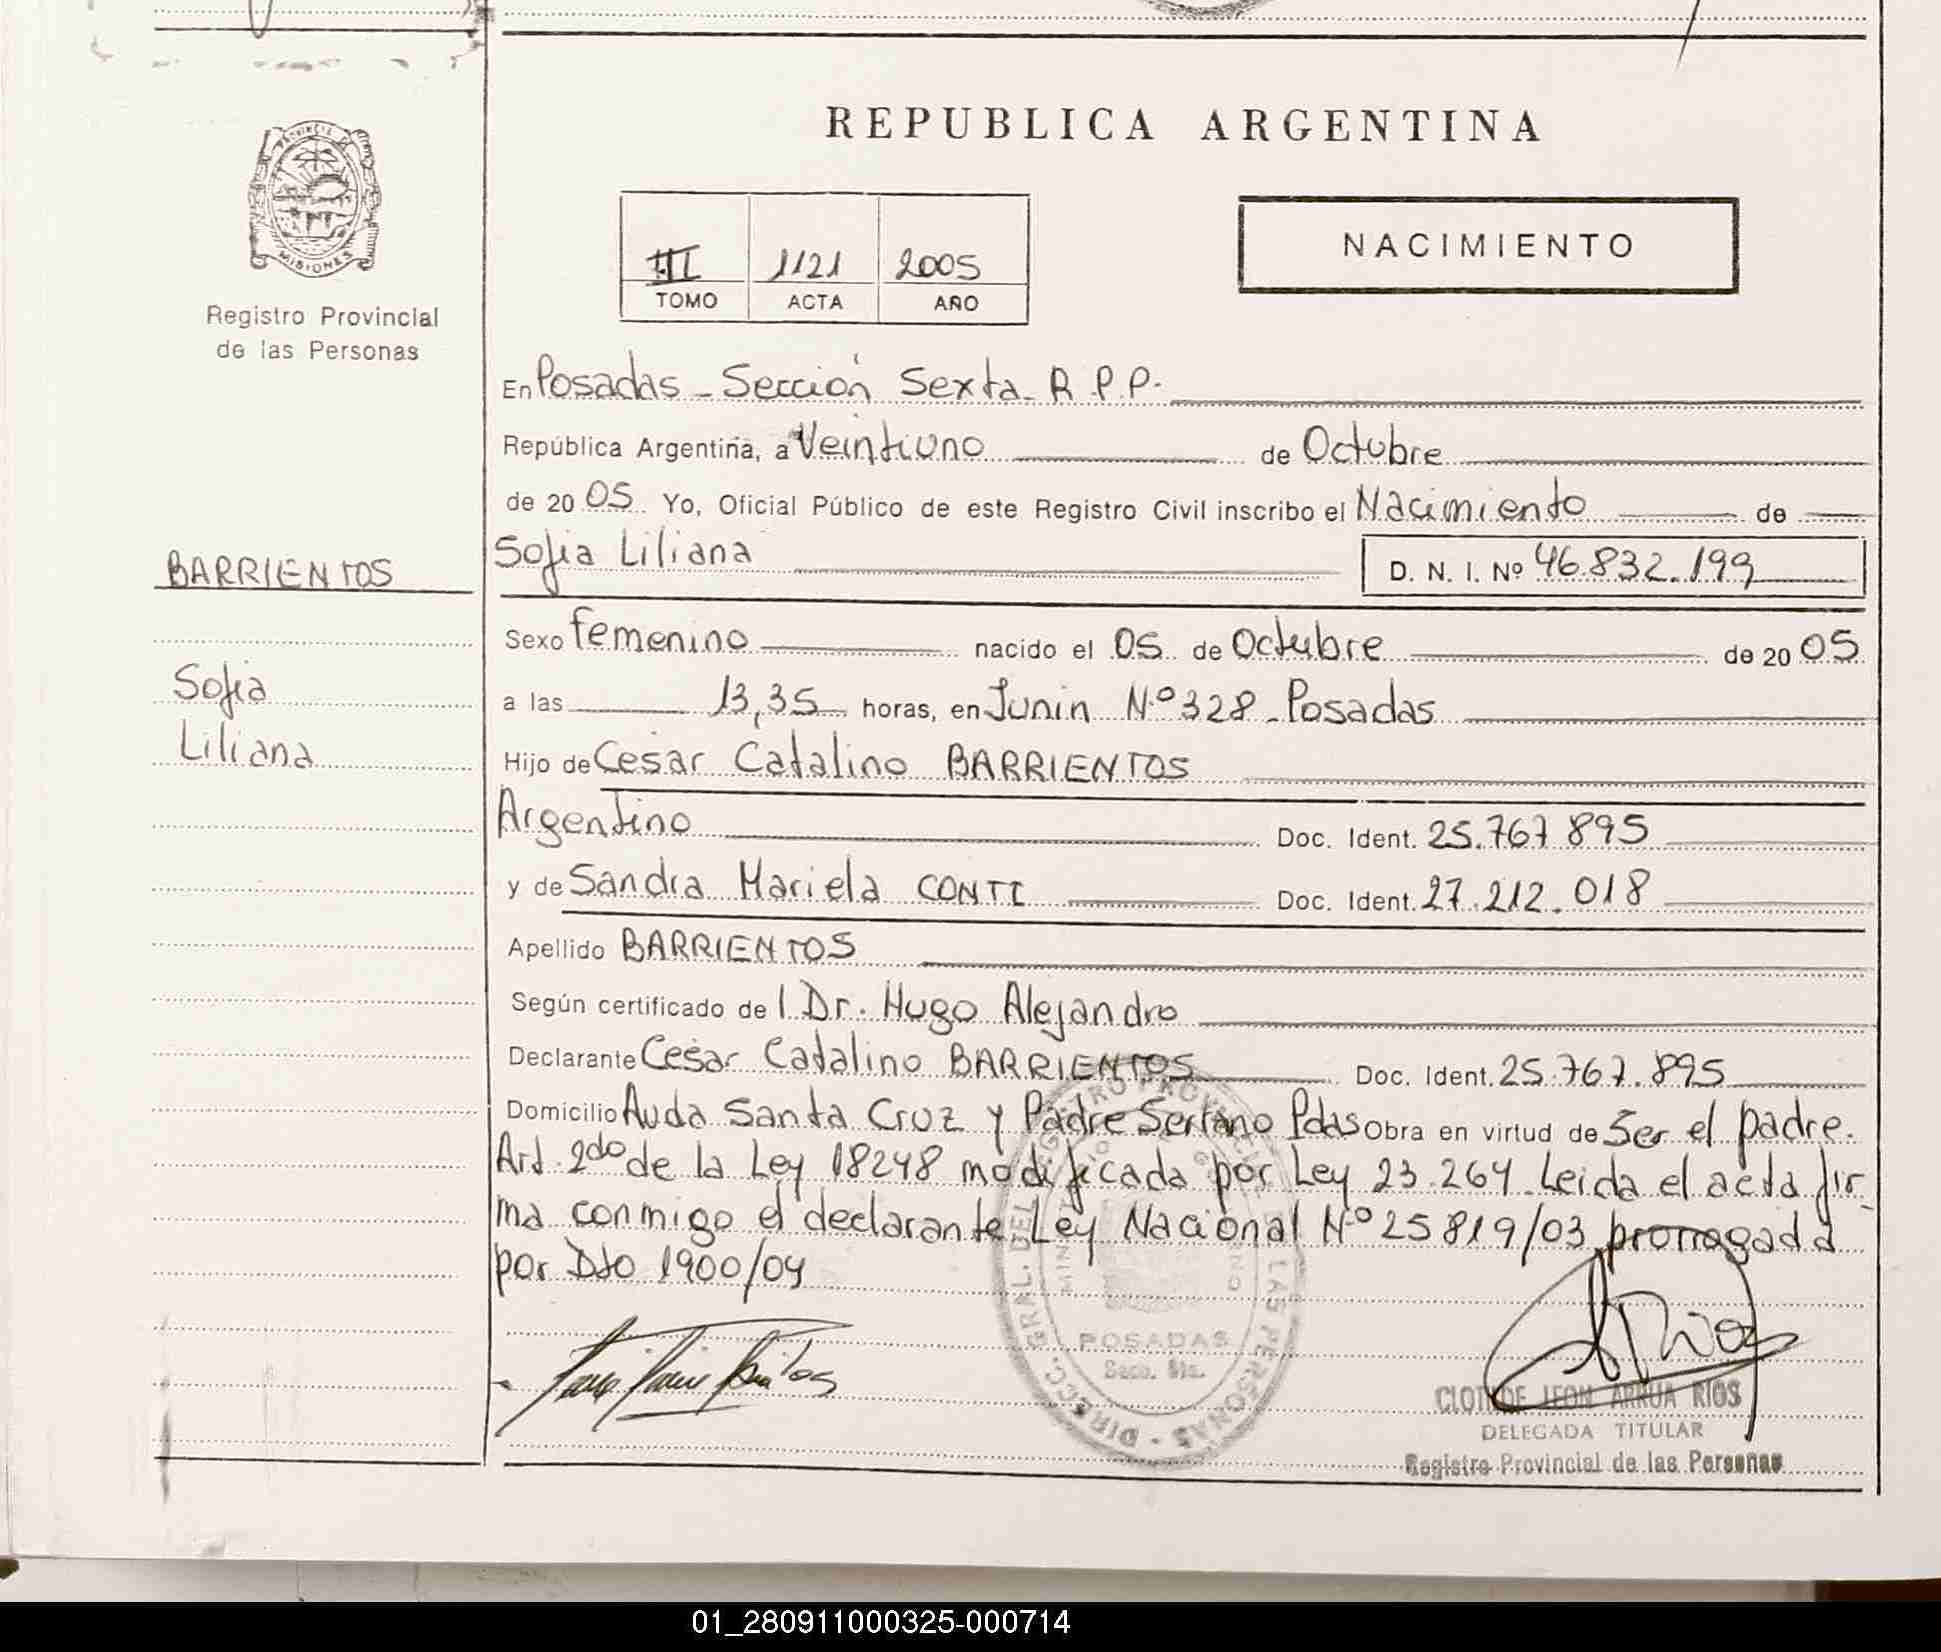 REPUBLICA ARGENTINA
PROVINCIA DE
MISIONES
Registro Provincial
de las Personas
III 1121 2005
TOMO ACTA AÑO
NACIMIENTO
En Posadas - Sección Sexta - R.P.P.
República Argentina, a Veintiuno de Octubre
de 2005 Yo, Oficial Público de este Registro Civil inscribo el Nacimiento de
BARRIENTOS
Sofia Liliana
D. N. I. Nº 46.832.199
Sexo femenino nacido el 05 de Octubre de 2005
Sofia
Liliana
a las 13,35 horas, en Junin N.º 328 - Posadas
Hijo de Cesar Catalino BARRIENTOS
Argentino Doc. Ident. 25.767.895
y de Sandra Mariela CONTI Doc. Ident. 27.212.018
Apellido BARRIENTOS
Según certificado de l Dr. Hugo Alejandro
Declarante Cesar Catalino BARRIENTOS Doc. Ident. 25.767.895
Domicilio Avda Santa Cruz y Padre Serrano Pdas Obra en virtud de Ser el padre.
Art. 2do de la Ley 18248 modificada por Ley 23.264. Leida el acta fir-
ma conmigo el declarante Ley Nacional N.º 25819/03 prorrogada
por Dto 1900/04
DIRECC. GRAL. DEL REGISTRO PROVINCIAL DE LAS PERSONAS
POSADAS
Secc. 6ta.
CLOTILDE LEON ARRUA RIOS
DELEGADA TITULAR
Registro Provincial de las Personas
01_280911000325-000714